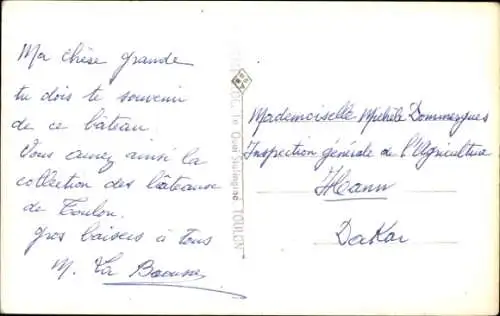 Ma chère grande
tu dois te souvenir
de ce bâteau.
Vous aurez ainsi la
collection des bâteaux
de Toulon.
gros baisers à tous
M. La
Quai Stalingrad TOULON
Mademoiselle Michèle Dommergues
Inspection générale de l'Agriculture
Hann
Dakar